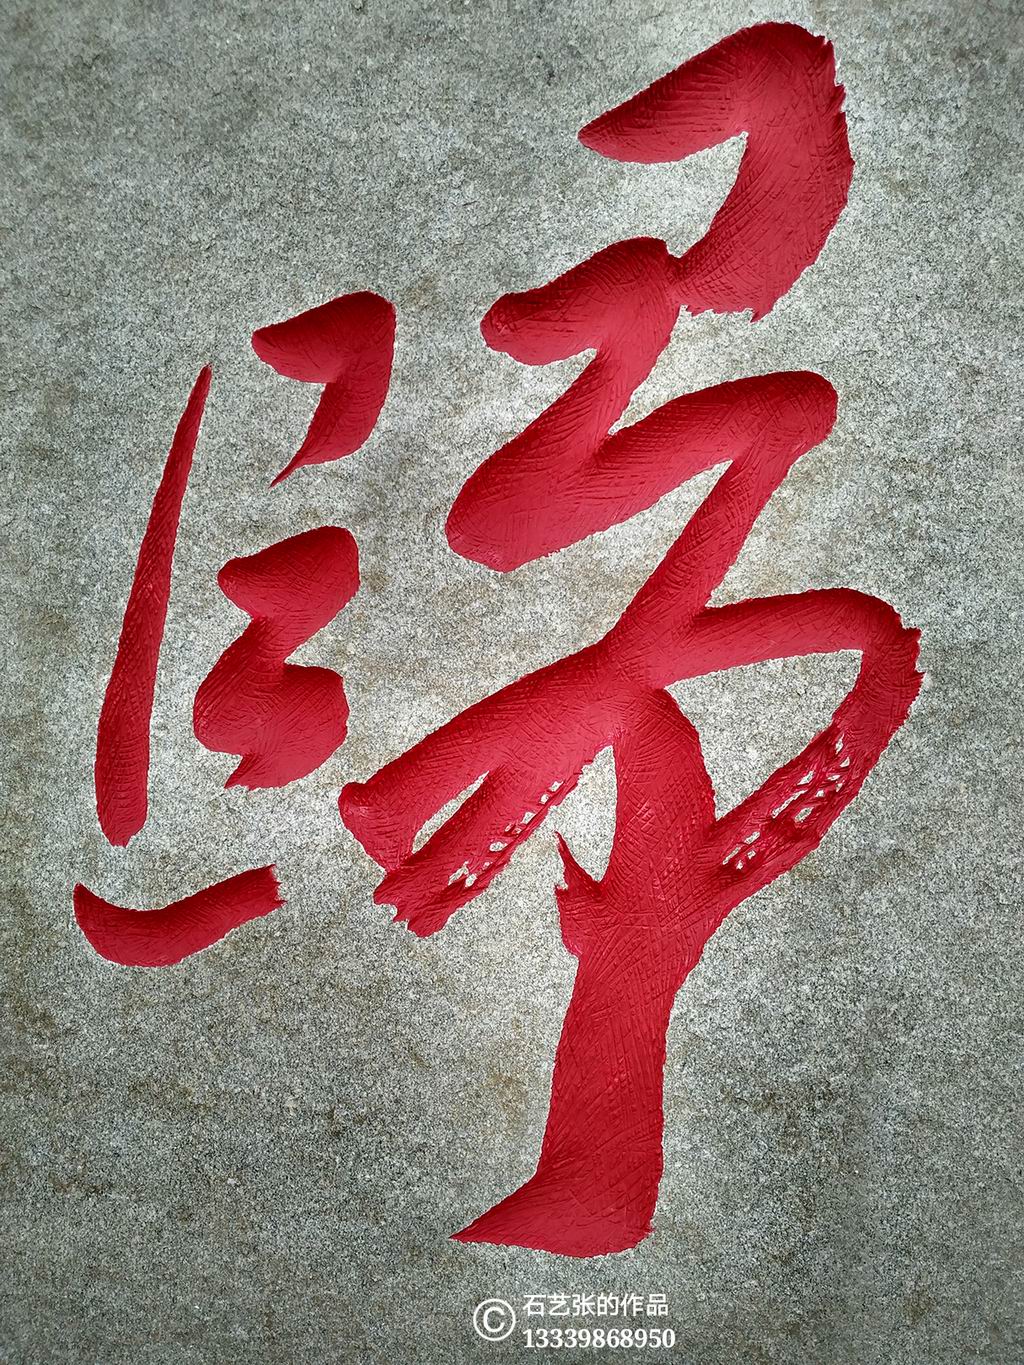 歸
石艺张的作品
13339868950